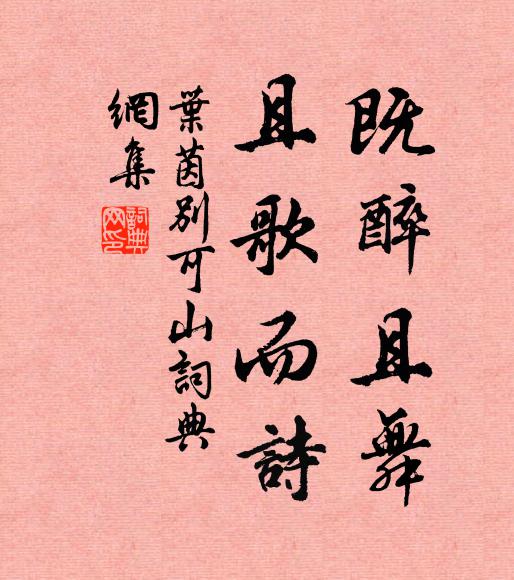 既醉且舞
且歌而詩
葉茵別可山詞典
網集
詞典網印